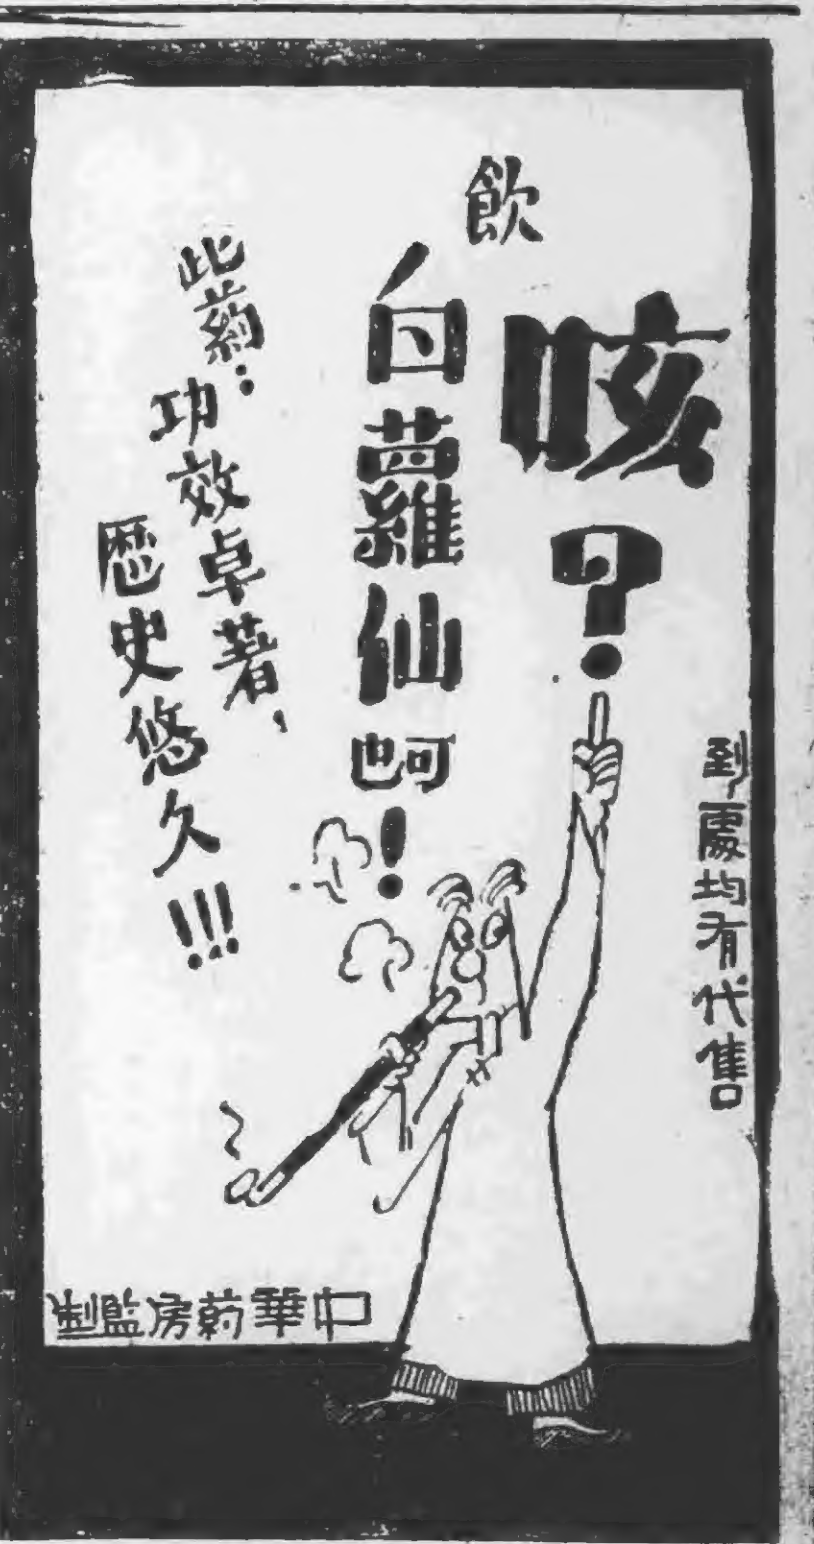 到處均有代售
咳?
飲
白蘿仙啊!
此葯:
功效卓著,
歷史悠久!!!
中華葯房監制